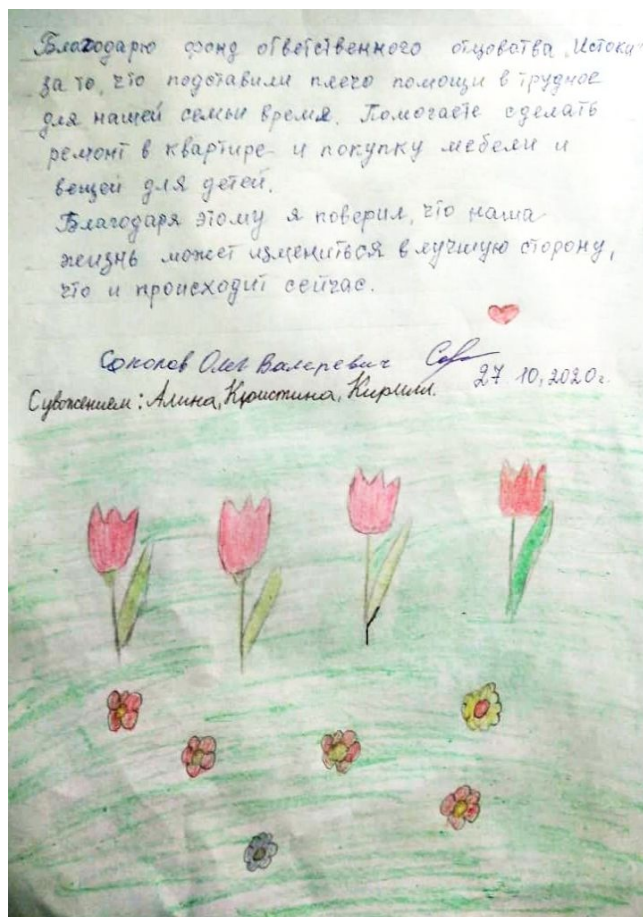 Благодарю фонд ответственного отцовства „Истоки"
за то, что подставили плечо помощи в трудное
для нашей семьи время. Помогаете сделать
ремонт в квартире и покупку мебели и
вещей для детей.
Благодаря этому я поверил, что наша
жизнь может измениться в лучшую сторону,
что и происходит сейчас.
Соколов Олег Валеревич
27 10, 2020г.
Суважением: Алина, Кристина, Кирилл.